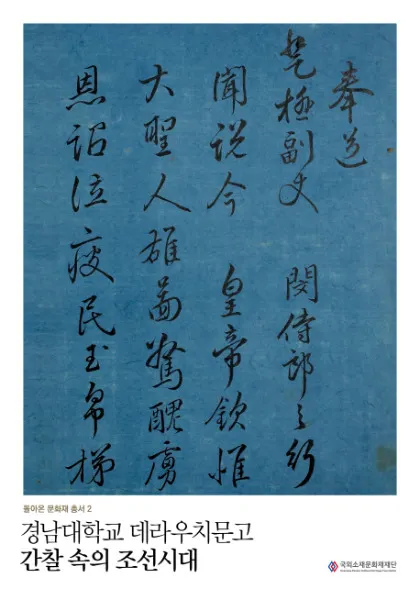 奉送
登極副史 閔侍郎之行
聞説今 皇帝欽惟
大聖人雄啚驚醜虜
恩詔泣疲民玉帛梯
돌아온 문화재 총서 2
경남대학교 데라우치문고
간찰 속의 조선시대
국외소재문화재재단